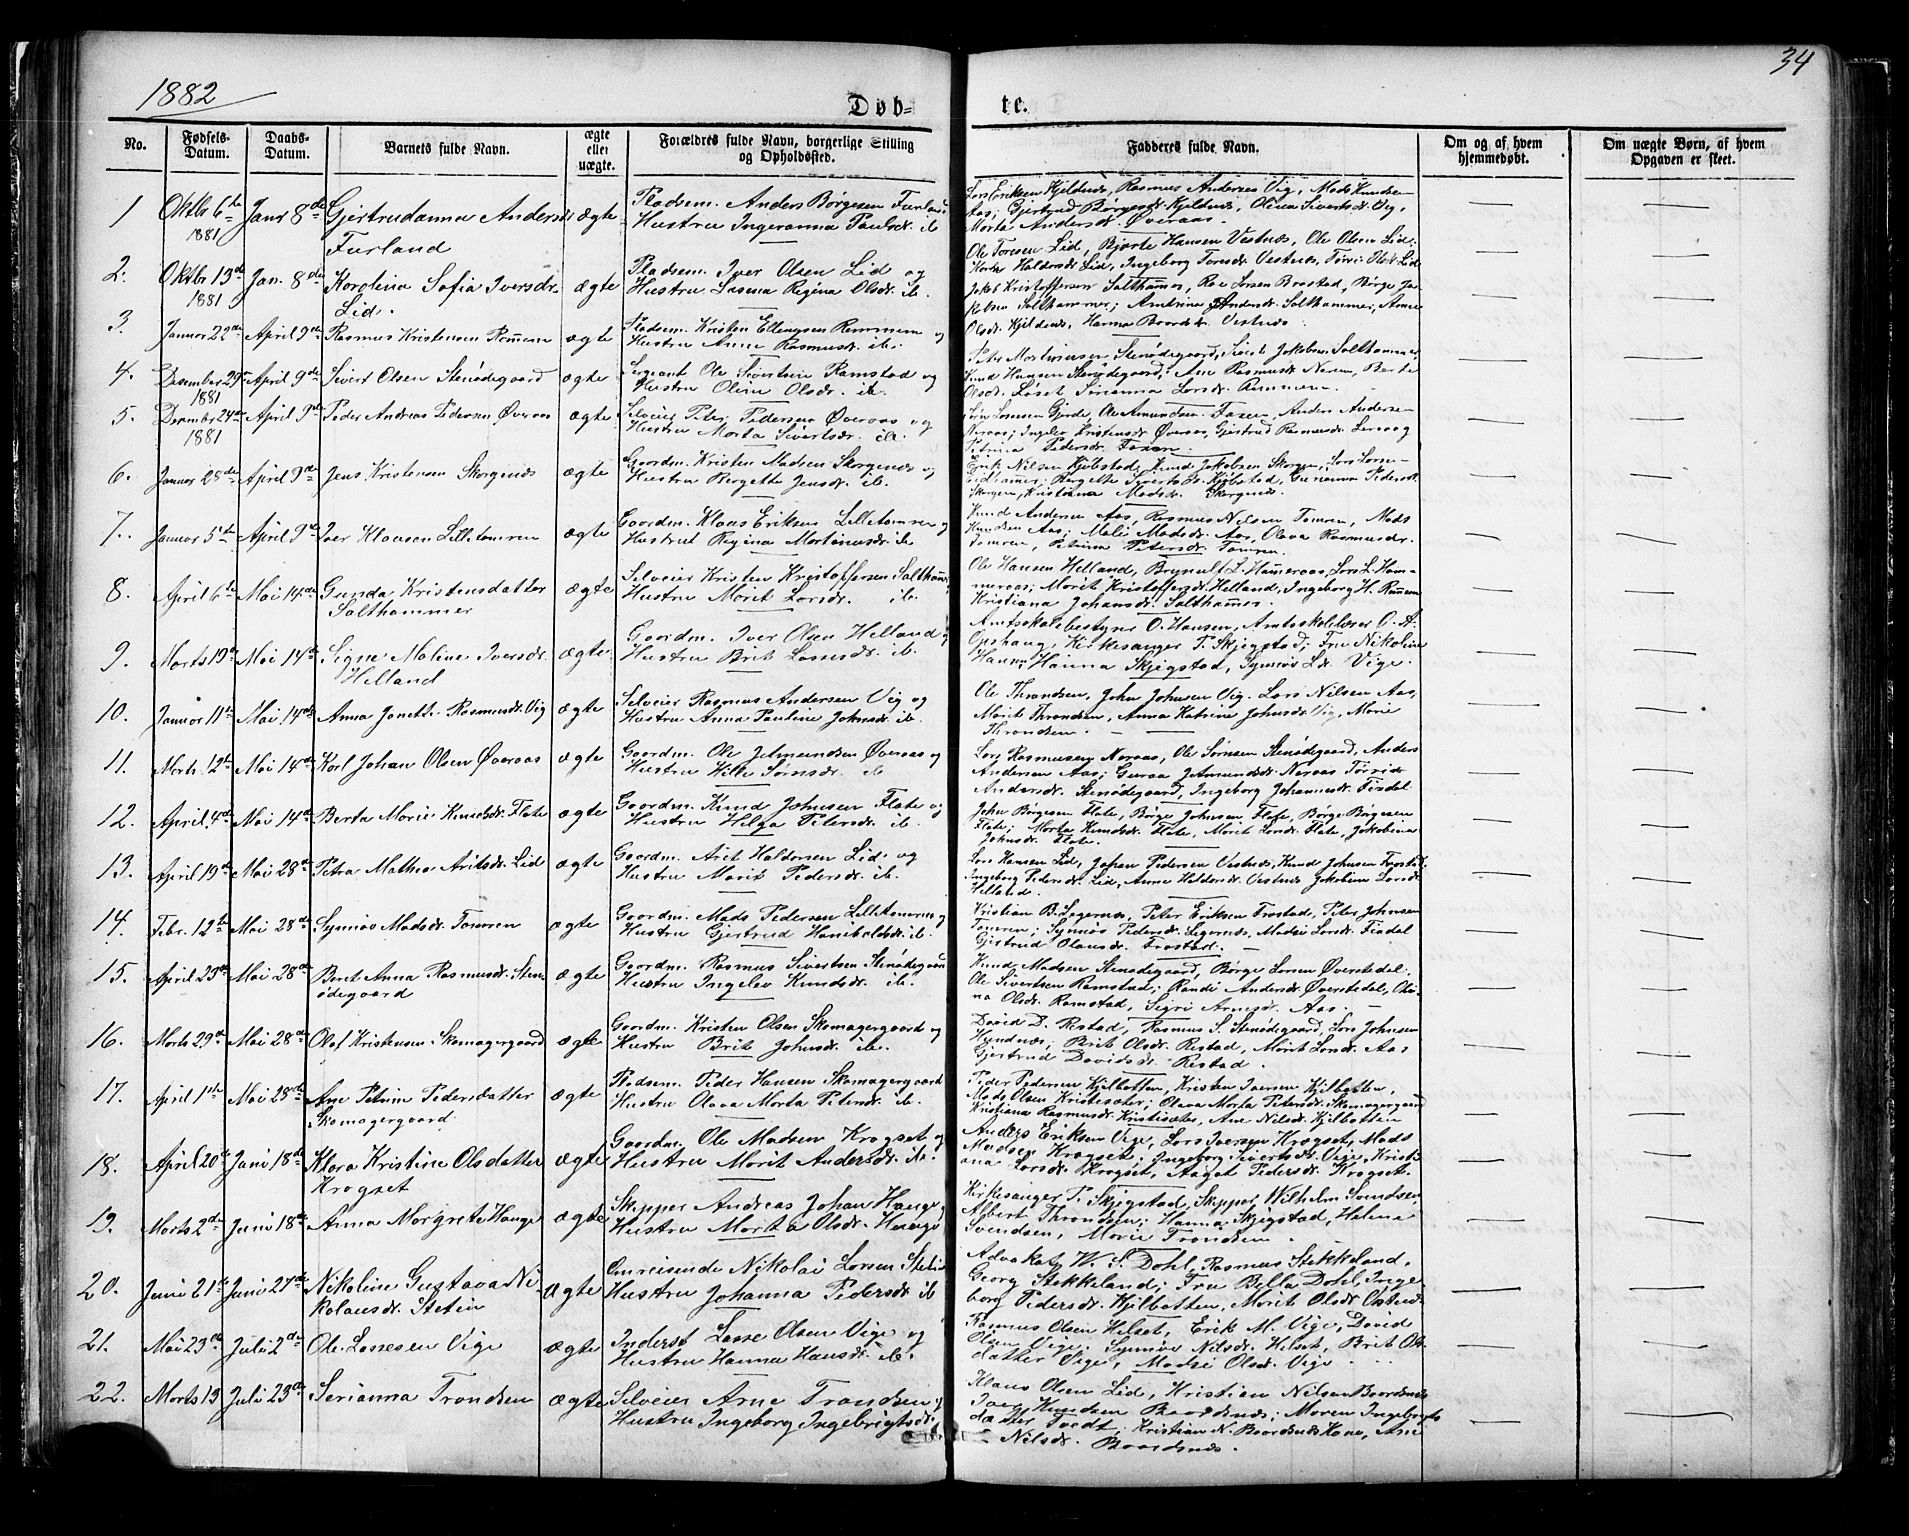 1882
34
Døb=
te.
No.
Fødsels-
Datum.
Daabs-
Datum.
Barnets fulde Navn.
ægte
eller
uægte.
Forældres fulde Navn, borgerlige Stilling
og Opholdssted.
Fadderes fulde Navn.
Om og af hvem
hjemmedøbt.
Om uægte Børn, af hvem
Opgaven er skeet.
1 Oktbr 6te Janr 8de Gjertrudanna Andersdr ægte Pladsm. Anders Børgesen Furland
1881 Hustru Ingeranna Paulsdr. ib.
Furland
Lars Eriksen Kjeldnæs, Rasmus Andersen Vig, Mads Knudsen
Aas; Gjertrud Børgesdr. Kjeldnæs, Olina Sivertsdr. Vig,
Marta Andersdr. Øveraas.
2. Oktbr 13de Jan. 8de Karolina Sofia Iversdr. ægte Pladsm. Iver Olsen Lid og
1881 Hustru Lasma Regina Olsdr. ib.
Lid.
Ole Toresen Lid, Bjarte Hansen Vestnæs, Ole Olsen Lid;
Marta Haldorsdr. Lid, Ingeborg Toresdr. Vestnæs,
3. Januar 22de April 9de Rasmus Kristensen Remmem ægte Pladsm. Kristen Ellingsen Remmem og
Hustru Anne Rasmusdr. ib.
Jakob Kristoffersen Salthammer,
Salthammer; Andersdr. Salthammer, Anne
Olsdr. Kjeldnæs, Hanna Baardsdr. Vestnæs.
4. Desember 29de April 9de Sivert Olsen Stenødegaard ægte Sergeant Ole Sivertsen Ramstad og
1881 Hustru Oline Olsdr. ib.
Peter Martinusen Stenødegaard, Sivert Jakobsen Salthammer
Knud Hansen Stenødegaard; Ane Rasmusdr. Neraas,
Olsdr. Larsdr. Remmem.
5. Desember 24de April 9de Peder Andreas Pedersen Øveraas ægte Selveier Peter Pedersen Øveraas og
1881 Hustru Marta Sivertsdr. ib.
Gjerde, Ole Amundsen Anders Andersen
Neraas; Ingelev Kristensdr. Øveraas, Gjertrud Rasmusdr.
Petrina Pedersdr.
6. Januar 28de April 9de Jens Kristensen Skorgenæs ægte Gaardm. Kristen Madsen Skorgenæs og
Hustru Bergette Jensdr. ib.
Erik Nilsen Kjelbstad, Knud Jakobsen Skorgen, Lars Larsen
Skorgen, Kristianna Madsdr. Skorgenæs.
7. Januar 5te April 9de Iver Klausen Lilletomren ægte Gaardm. Klaus Eriksen Lilletomren og
Hustru Regina Martinusdr. ib.
Knud Andersen Aas, Rasmus Nilsen Tomren, Mads
Knudsen Aas, Malei Madsdr. Aas, Olava Rasmusdr.
Tomren, Petrina Petersdr. Tomren.
8. April 6te Mai 14de Gunda Kristensdatter ægte Selveier Kristen Kristoffersen Salthammer
Salthammer Hustru Marit Larsdr. ib.
Ole Hansen Helland, Brynult L. Hammeraas, Lars L. Ham-
meraas; Marit Kristoffersdr. Helland, Ingeborg H. Remmem
Kristiana Johansdr. Salthammer.
9. Marts 19de Mai 14de Signe Maline Iversdr. ægte Gaardm. Iver Olsen Helland og
Helland Hustru Brit Lassesdr. ib.
Amtsskolebestyrer O. Hansen, Amtsskolelærer O. A.
Opshaug, Kirkesanger P. Skjegstad; Fru Nikoline
Hansen, Hanna Skjegstad, Synnøv L.dr. Vige.
10. Januar 11te Mai 14de Anna Janette Rasmusdr. Vig ægte Selveier Rasmus Andersen Vig og
Hustru Anna Pauline Johnsdr. ib.
Ole Throndsen, John Johnsen Vig, Lars Nilsen Aas,
Marit Throndsen, Anna Katrine Johnsdr. Vig, Marie
Throndsen.
11. Marts 12te Mai 14de Karl Johan Olsen Øveraas ægte Gaardm. Ole Jetmundsen Øveraas og
Hustru Sørensdr. ib
Lars Rasmusen Neraas, Ole Sørnsen Stenødegaard, Anders
Andersen Aas; Guraa Jetmundsdr. Neraas
Andersdr. Stenødegaard, Ingeborg Johannesdr. Fisdal
12. April 4de Mai 14de Berta Marie Knudsdr. Flate ægte Gaardm. Knud Johnsen Flate og
Hustru Helga Petersdr. ib.
John Børgesen Flate, Børge Johnsen Flate, Børge Børgesen
Flate; Marta Knudsdr. Flate, Marit Larsdr. Flate, Jakobina
Johnsdr. Flate.
13. April 19de Mai 28de Petra Mathea Aritsdr. Lid ægte Gaardm. Arit Haldorsen Lid og
Hustru Marit Pedersdr. ib.
Lars Hansen Lid, Johan Pedersen Vestnæs, Knud Johnsen Frostad
Ingeborg Pedersdr. Lid, Anne Haldorsdr. Vestnæs Jakobina Larsdr.
Helland.
14. Febr. 12te Mai 28de Synnøv Madsdr. Tomren ægte Gaardm. Mads Pedersen Lilletomren og
Hustru Gjertrud Hanibalsdr. ib.
Kristian B. Segernæs, Peter Eriksen Frostad, Peter Johnsen
Tomren; Synnøv Pedersdr. Segernæs, Madsi Larsdr. Fisdal
Gjertrud Olausdr. Frostad.
15. April 23de Mai 28de Berit Anna Rasmusdr. Sten- ægte Gaardm. Rasmus Sivertsen Stenødegaard
ødegaard Hustru Ingelev Knudsdr. ib.
Knud Madsen Stenødegaard, Børge Larsen Øverstedal,
Ole Sivertsen Ramstad; Randi Andersdr. Øverstedal, Oli-
na Olsdr. Ramstad, Sigri Arnesdr. Aas.
16. Marts 29de Mai 28de Olaf Kristensen Skomagergaard ægte Gaardm. Kristen Olsen Skomagergaard og
Hustru Brit Johnsdr. ib.
David D. Restad, Rasmus S. Stenødegaard, Lars Johnsen
Hyndnæs; Brit Olsdr. Restad, Marit Larsdr. Aas
Gjertrud Davidsdr. Restad.
17. April 1ste Mai 28de Ane Petrine Pedersdatter ægte Pladsm. Peder Hansen Skomagergaard
Skomagergaard. Hustru Olava Marta Petersdr. ib.
Peder Pedersen Kjelbotten, Kristen Iversen Kjelbotten,
Mads Olsen Kristisæter; Olava Marta Petersdr. Skomagergaard
Kristiana Rasmusdr. Kristisæter, Ane Nilsdr. Kjelbotten
18. April 20de Juni 18de Klara Kristine Olsdatter ægte Gaardm. Ole Madsen Krogset og
Krogset Hustru Marit Andersdr. ib.
Anders Eriksen Vige, Lars Iversen Krogset, Mads
Madsen Krogset; Ingeborg Sivertsdr. Vige, Kristi-
ana Larsdr. Krogset, Aagot Pedersdr. Krogset.
19. Marts 2de Juni 18de Anna Margrete Hauge ægte Skipper Andreas Johan Hauge og
Hustru Marta Olsdr. Hauge
Kirkesanger P. Skjegstad, Skipper Wilhelm Svendsen
Albert Throndsen; Hanna Skjegstad, Helena
Svendsen, Marie Trondsen.
20. Juni 21de Juni 27de Nikoline Gustava Ni- ægte Omreisende Nikolai Larsen Stetin
kolausdr. Stetin Hustru Johanna Pedersdr. ib
Advokat W. S. Dahl, Rasmus Stekkeland,
Georg Stekkeland; Fru Bella Dahl, Inge-
borg Pedersdr. Kjelbotten, Marit Olsdr.
21. Mai 23de Juli 2de Ole Lassesen Vige ægte Inderst Lasse Olsen Vige og
Hustru Hanna Hansdr. ib.
Rasmus Olsen Helset, Erik M. Vige, David
Olsen Vige; Synnøv Nilsdr. Helset, Brit Ols-
datter Vige, Madsi Olsdr. Vige.
22. Marts 13 Juli 23de Serianna Trondsen ægte Selveier Arne Trondsen og
Hustru Ingeborg Ingebrigtsdr.
Klaus Olsen Lid, Kristian Nilsen Baardsnæs
Iver Knudsen Baardsnæs; Maren Ingebrigts-
datter Kristian N. Baardsnæs Kone, Ane
Nilsdr. Baardsnæs.